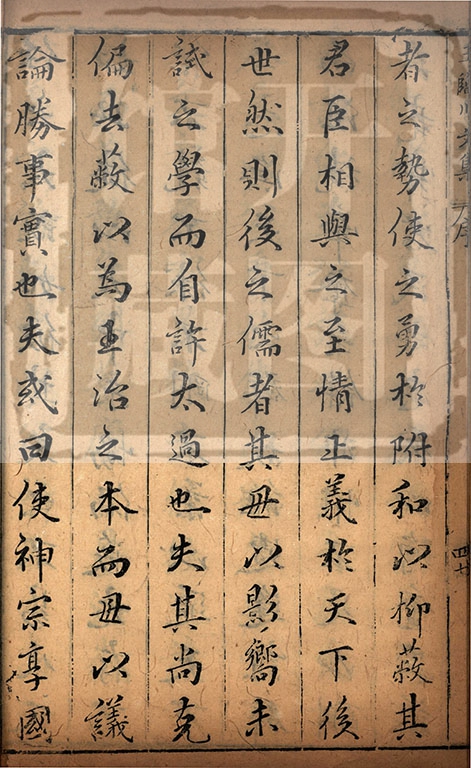 者之勢使之勇於附和以抑蔽其
君臣相與之至情止義於天下後
世然則後之儒者其毋以影嚮未
試之學而自許太過也夫其尚克
偏去蔽以為王治之本而毋以議
論勝事實也夫或曰使神宗享國